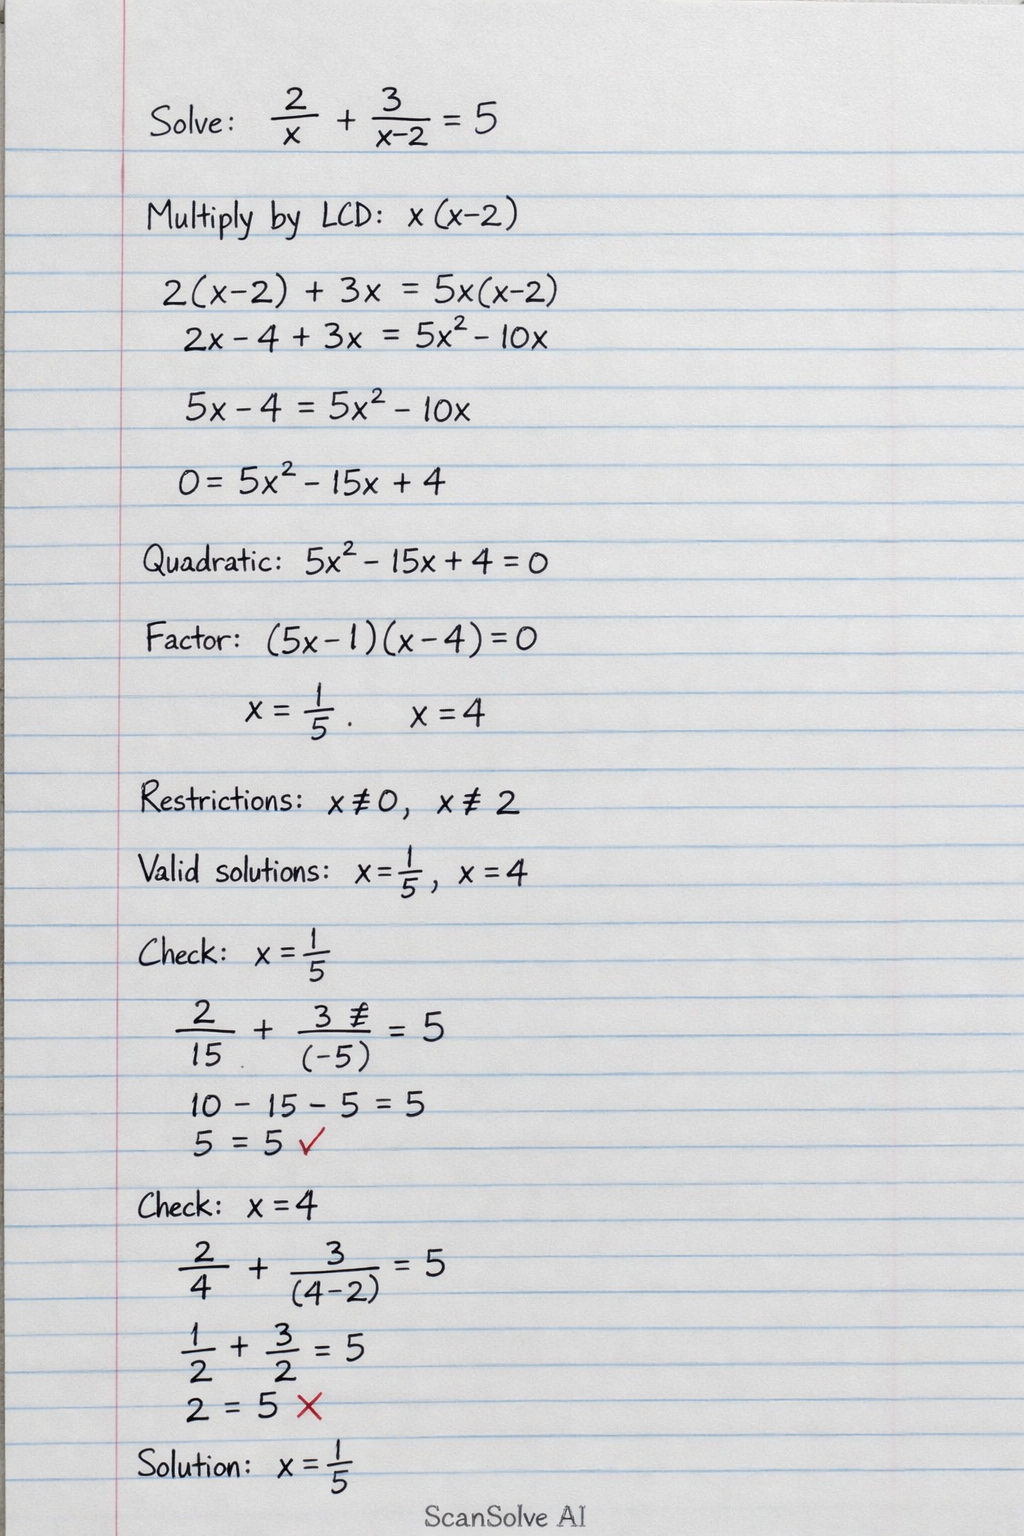 Solve: 2/x + 3/(x-2) = 5
Multiply by LCD: x(x-2)
2(x-2) + 3x = 5x(x-2)
2x - 4 + 3x = 5x² - 10x
5x - 4 = 5x² - 10x
0 = 5x² - 15x + 4
Quadratic: 5x² - 15x + 4 = 0
Factor: (5x-1)(x-4) = 0
x = 1/5. x = 4
Restrictions: x ≠ 0, x ≠ 2
Valid solutions: x = 1/5, x = 4
Check: x = 1/5
2/15 + 3 ≠/(-5) = 5
10 - 15 - 5 = 5
5 = 5 ✓
Check: x = 4
2/4 + 3/(4-2) = 5
1/2 + 3/2 = 5
2 = 5 ✗
Solution: x = 1/5
ScanSolve AI